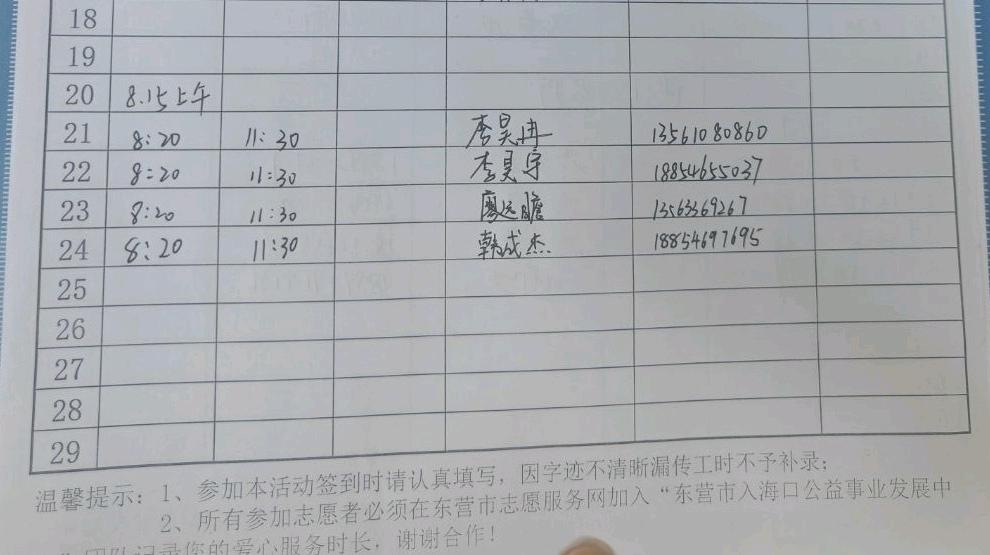 18
19
20 8.15上午
21 8:20 11:30 李昊冉 13561080860
22 8:20 11:30 李昊宇 18854655037
23 8:20 11:30 廖远瞻 13563369267
24 8:20 11:30 韩成杰 18854697695
25
26
27
28
29
温馨提示：1、参加本活动签到时请认真填写，因字迹不清晰漏传工时不予补录；
2、所有参加志愿者必须在东营市志愿服务网加入“东营市入海口公益事业发展中
团队记录您的爱心服务时长，谢谢合作！